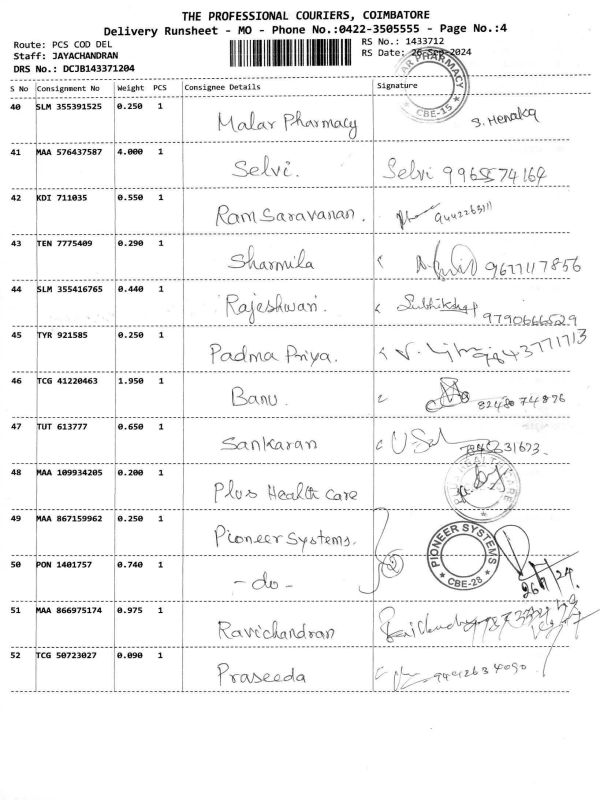 THE PROFESSIONAL COURIERS, COIMBATORE
Delivery Runsheet - MO - Phone No.:0422-3505555 - Page No.:4
Route: PCS COD DEL
Staff: JAYACHANDRAN
DRS No.: DCJB143371204
RS No.: 1433712
RS Date: 26-Sep-2024
S No Consignment No Weight PCS Consignee Details Signature
PHARMACY
CBE-15
40 SLM 355391525 0.250 1 Malar Pharmacy S.
41 MAA 576437587 4.000 1 Selvi. Selvi 9965574164
42 KDI 711035 0.550 1 Ram Saravanan.
43 TEN 7775409 0.290 1 Sharmila 9677117856
44 SLM 355416765 0.440 1 Rajeshwari. 9790666529
45 TYR 921585 0.250 1 Padma Priya. 9843771713
46 TCG 41220463 1.950 1 Banu. 8248074876
47 TUT 613777 0.650 1 Sankaran
48 MAA 109934205 0.200 1 Plus Health care
49 MAA 867159962 0.250 1 Pioneer Systems.
PIONEER SYSTEMS
CBE-28
50 PON 1401757 0.740 1 -do-
51 MAA 866975174 0.975 1 Ravichandran
52 TCG 50723027 0.090 1 Praseeda 9442634090